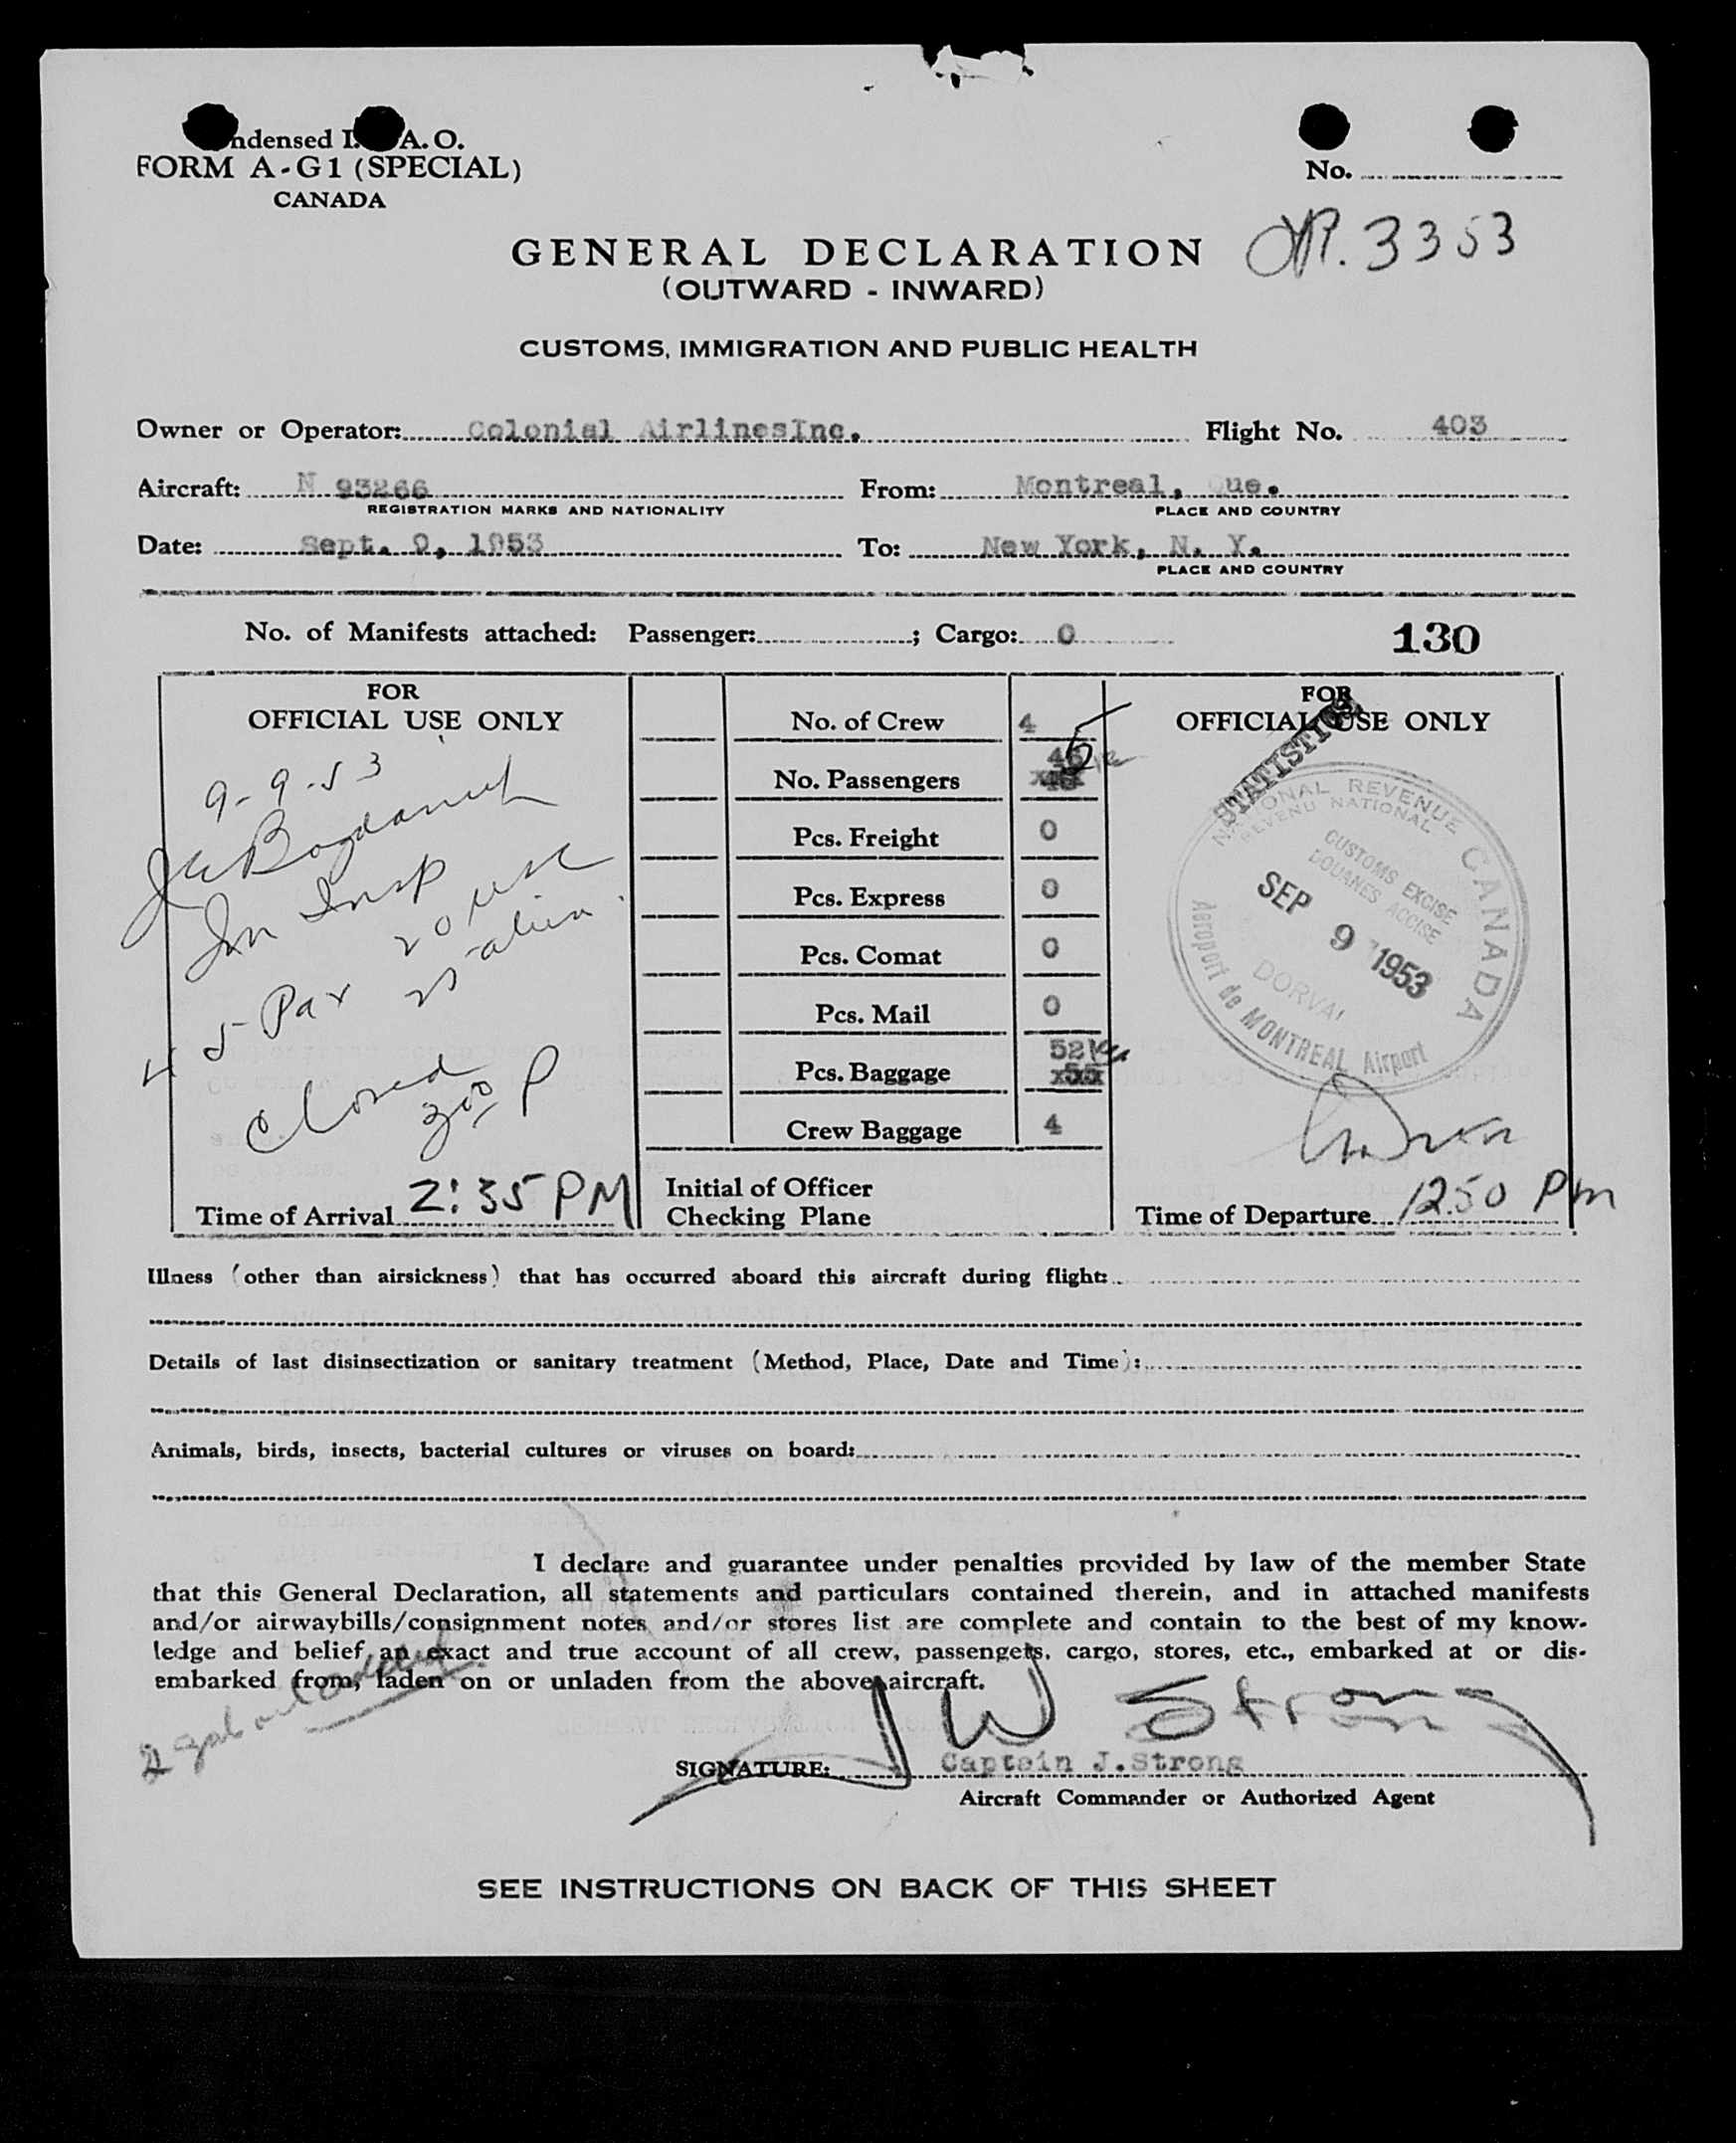 ndensed I. A. O.
FORM A-G1 (SPECIAL)
CANADA
No.
3353
GENERAL DECLARATION
(OUTWARD - INWARD)
CUSTOMS, IMMIGRATION AND PUBLIC HEALTH
Owner or Operator: Colonial AirlinesInc. Flight No. 403
Aircraft: N 93266 From: Montreal, Que.
REGISTRATION MARKS AND NATIONALITY PLACE AND COUNTRY
Date: Sept. 9, 1953 To: New York, N. Y.
PLACE AND COUNTRY
No. of Manifests attached: Passenger: ; Cargo: 0 130
FOR
OFFICIAL USE ONLY
9-9-53
Im Insp
45 Pax 20 usc
25 alien
Closed
300 P
Time of Arrival 2:35 PM
No. of Crew 4
No. Passengers 45
Pcs. Freight 0
Pcs. Express 0
Pcs. Comat 0
Pcs. Mail 0
Pcs. Baggage 52
x55x
Crew Baggage 4
Initial of Officer
Checking Plane
FOR
OFFICIAL USE ONLY
STATISTICS
NATIONAL REVENUE CANADA
REVENU NATIONAL
CUSTOMS EXCISE
DOUANES ACCISE
SEP 9 1953
DORVAL
Aeroport de MONTREAL Airport
Time of Departure 12.50 Pm
Illness (other than airsickness) that has occurred aboard this aircraft during flight:
Details of last disinsectization or sanitary treatment (Method, Place, Date and Time):
Animals, birds, insects, bacterial cultures or viruses on board:
I declare and guarantee under penalties provided by law of the member State
that this General Declaration, all statements and particulars contained therein, and in attached manifests
and/or airwaybills/consignment notes and/or stores list are complete and contain to the best of my know-
ledge and belief, an exact and true account of all crew, passengers, cargo, stores, etc., embarked at or dis-
embarked from, laden on or unladen from the above aircraft.
J W Strong
SIGNATURE: Captain J.Strong
Aircraft Commander or Authorized Agent
SEE INSTRUCTIONS ON BACK OF THIS SHEET